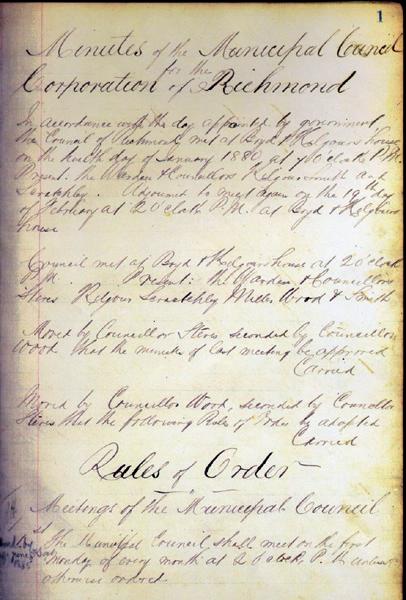 1
Minutes of the Municipal Council
for the
Corporation of Richmond
In accordance with the day appointed by government,
the Council of Richmond met at Boyd & Kilgours house
on the day of January 1880, at 7 o'clock P.M.
Present: the Warden & Councillors Kilgour Smith and
Scratchley. Adjourned to meet again on the 19th day
of February at 2 O'clock P.M. at Boyd & Kilgours
house
Council met at Boyd & Kilgours house at 2 o'clock
P.M. Present: the Warden & Councillors
Steves Kilgour Scratchley Miller Wood & Smith
Moved by Councillor Steves seconded by Councillor
Wood that the minutes of last meeting be approved
Carried
Moved by Councillor Wood, seconded by Councillor
Steves that the following Rules of Order be adopted
Carried
Rules of Order
Meetings of the Municipal Council
1st
The Municipal Council shall meet on the first
Monday of every month at 2 O'clock, P.M. unless
otherwise ordered